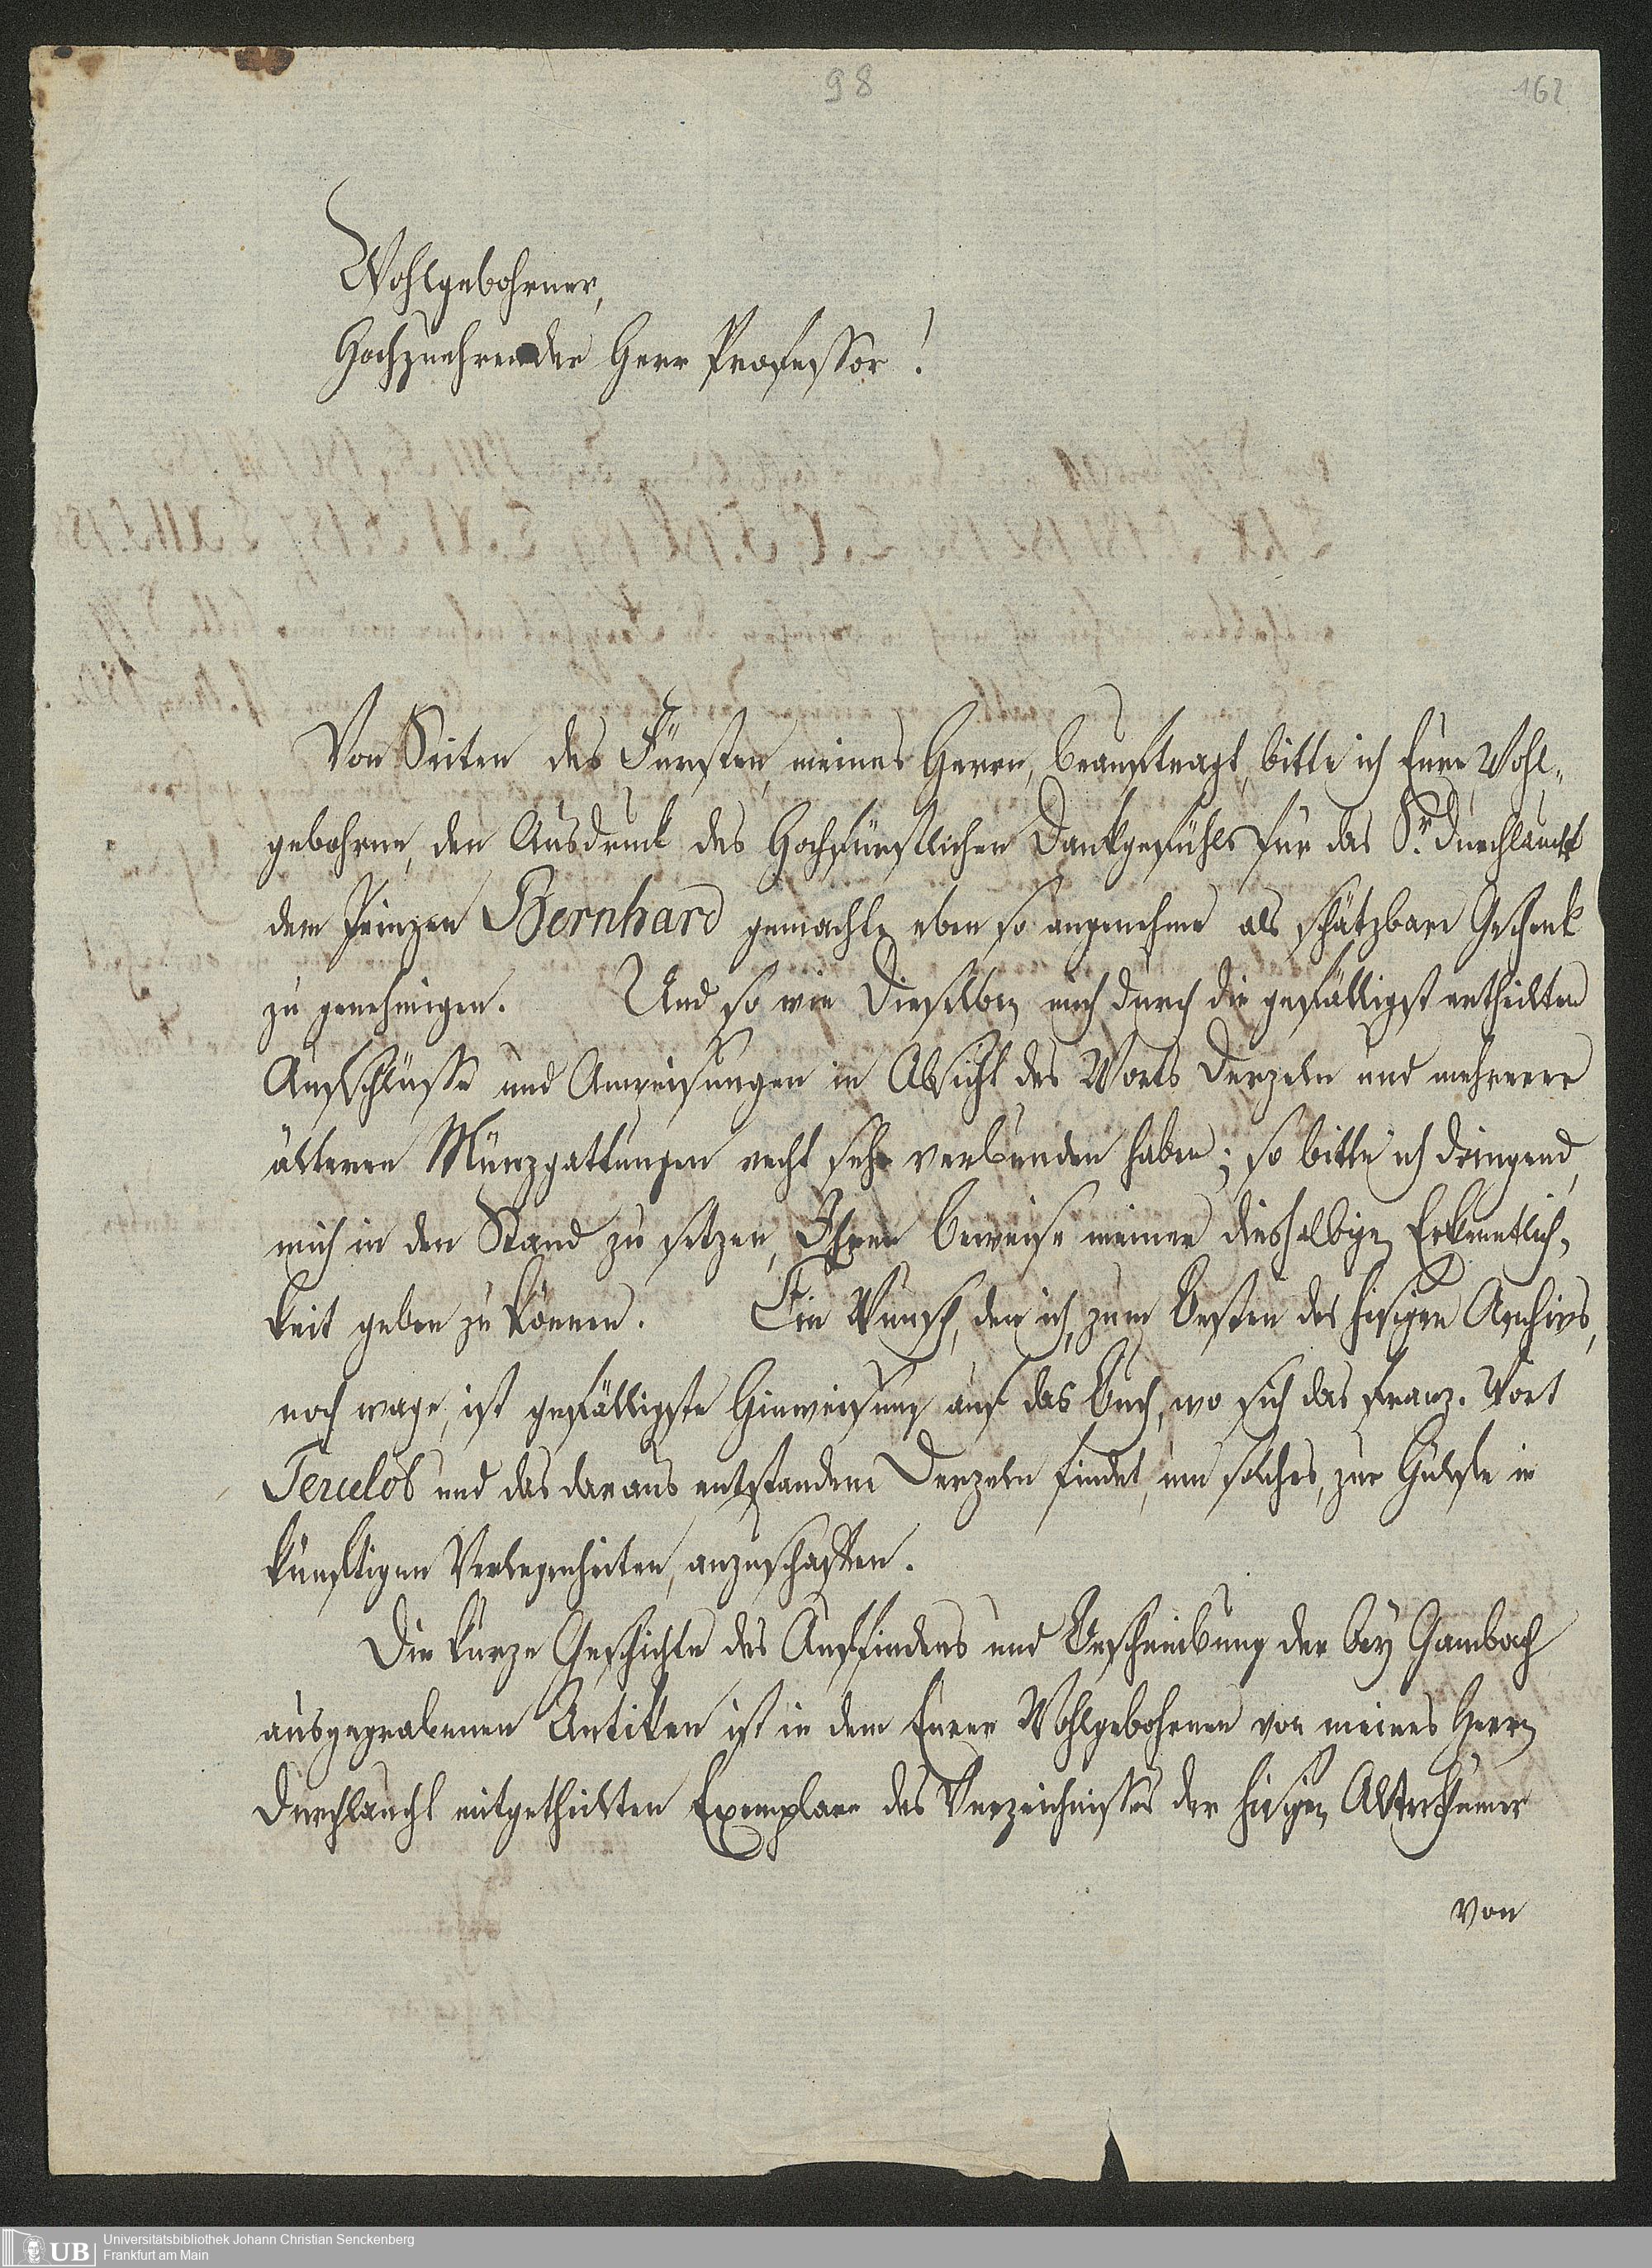 98
162
Wohlgebohrner,
Hochzuehrender Herr Professor!
Von Seiten des Fürsten, meines Herrn, beauftragt, bitte ich Eure Wohl-
gebohrne, den Ausdruck des Hochfürstlichen Dankgefühls für das Sr. Durchlaucht
dem Prinzen Bernhard gemachte eben so angenehme als schätzbare Geschenk
zu genehmigen. Und so wie Dieselben mich durch die gefälligst ertheilten
Aufschlüsse und Anweisungen in Absicht des Worts Derzeln und mehrerer
älteren Münzgattungen recht sehr verbunden haben; so bitte ich dringend,
mich in den Stand zu setzen, Ihnen Beweise meiner dieshalbigen Erkenntlich-
keit geben zu können. Ein Wunsch, den ich, zum Besten des hiesigen Archivs,
noch wage, ist gefälligste Hinweisung auf das Buch, wo sich das franz. Wort
Tercelos und das daraus entstandene Derzeln findet, um solches, zur Hülfe in
künftigen Verlegenheiten, anzuschaffen.
Die kurze Geschichte des Auffindens und Beschreibung der bey Gambach
ausgegrabenen Antiken ist in dem Euer Wohlgebohrnen von meines Herrn
Durchlaucht mitgetheilten Exemplare des Verzeichnisses der hiesigen Alterthümer
von
UB
Universitätsbibliothek Johann Christian Senckenberg
Frankfurt am Main